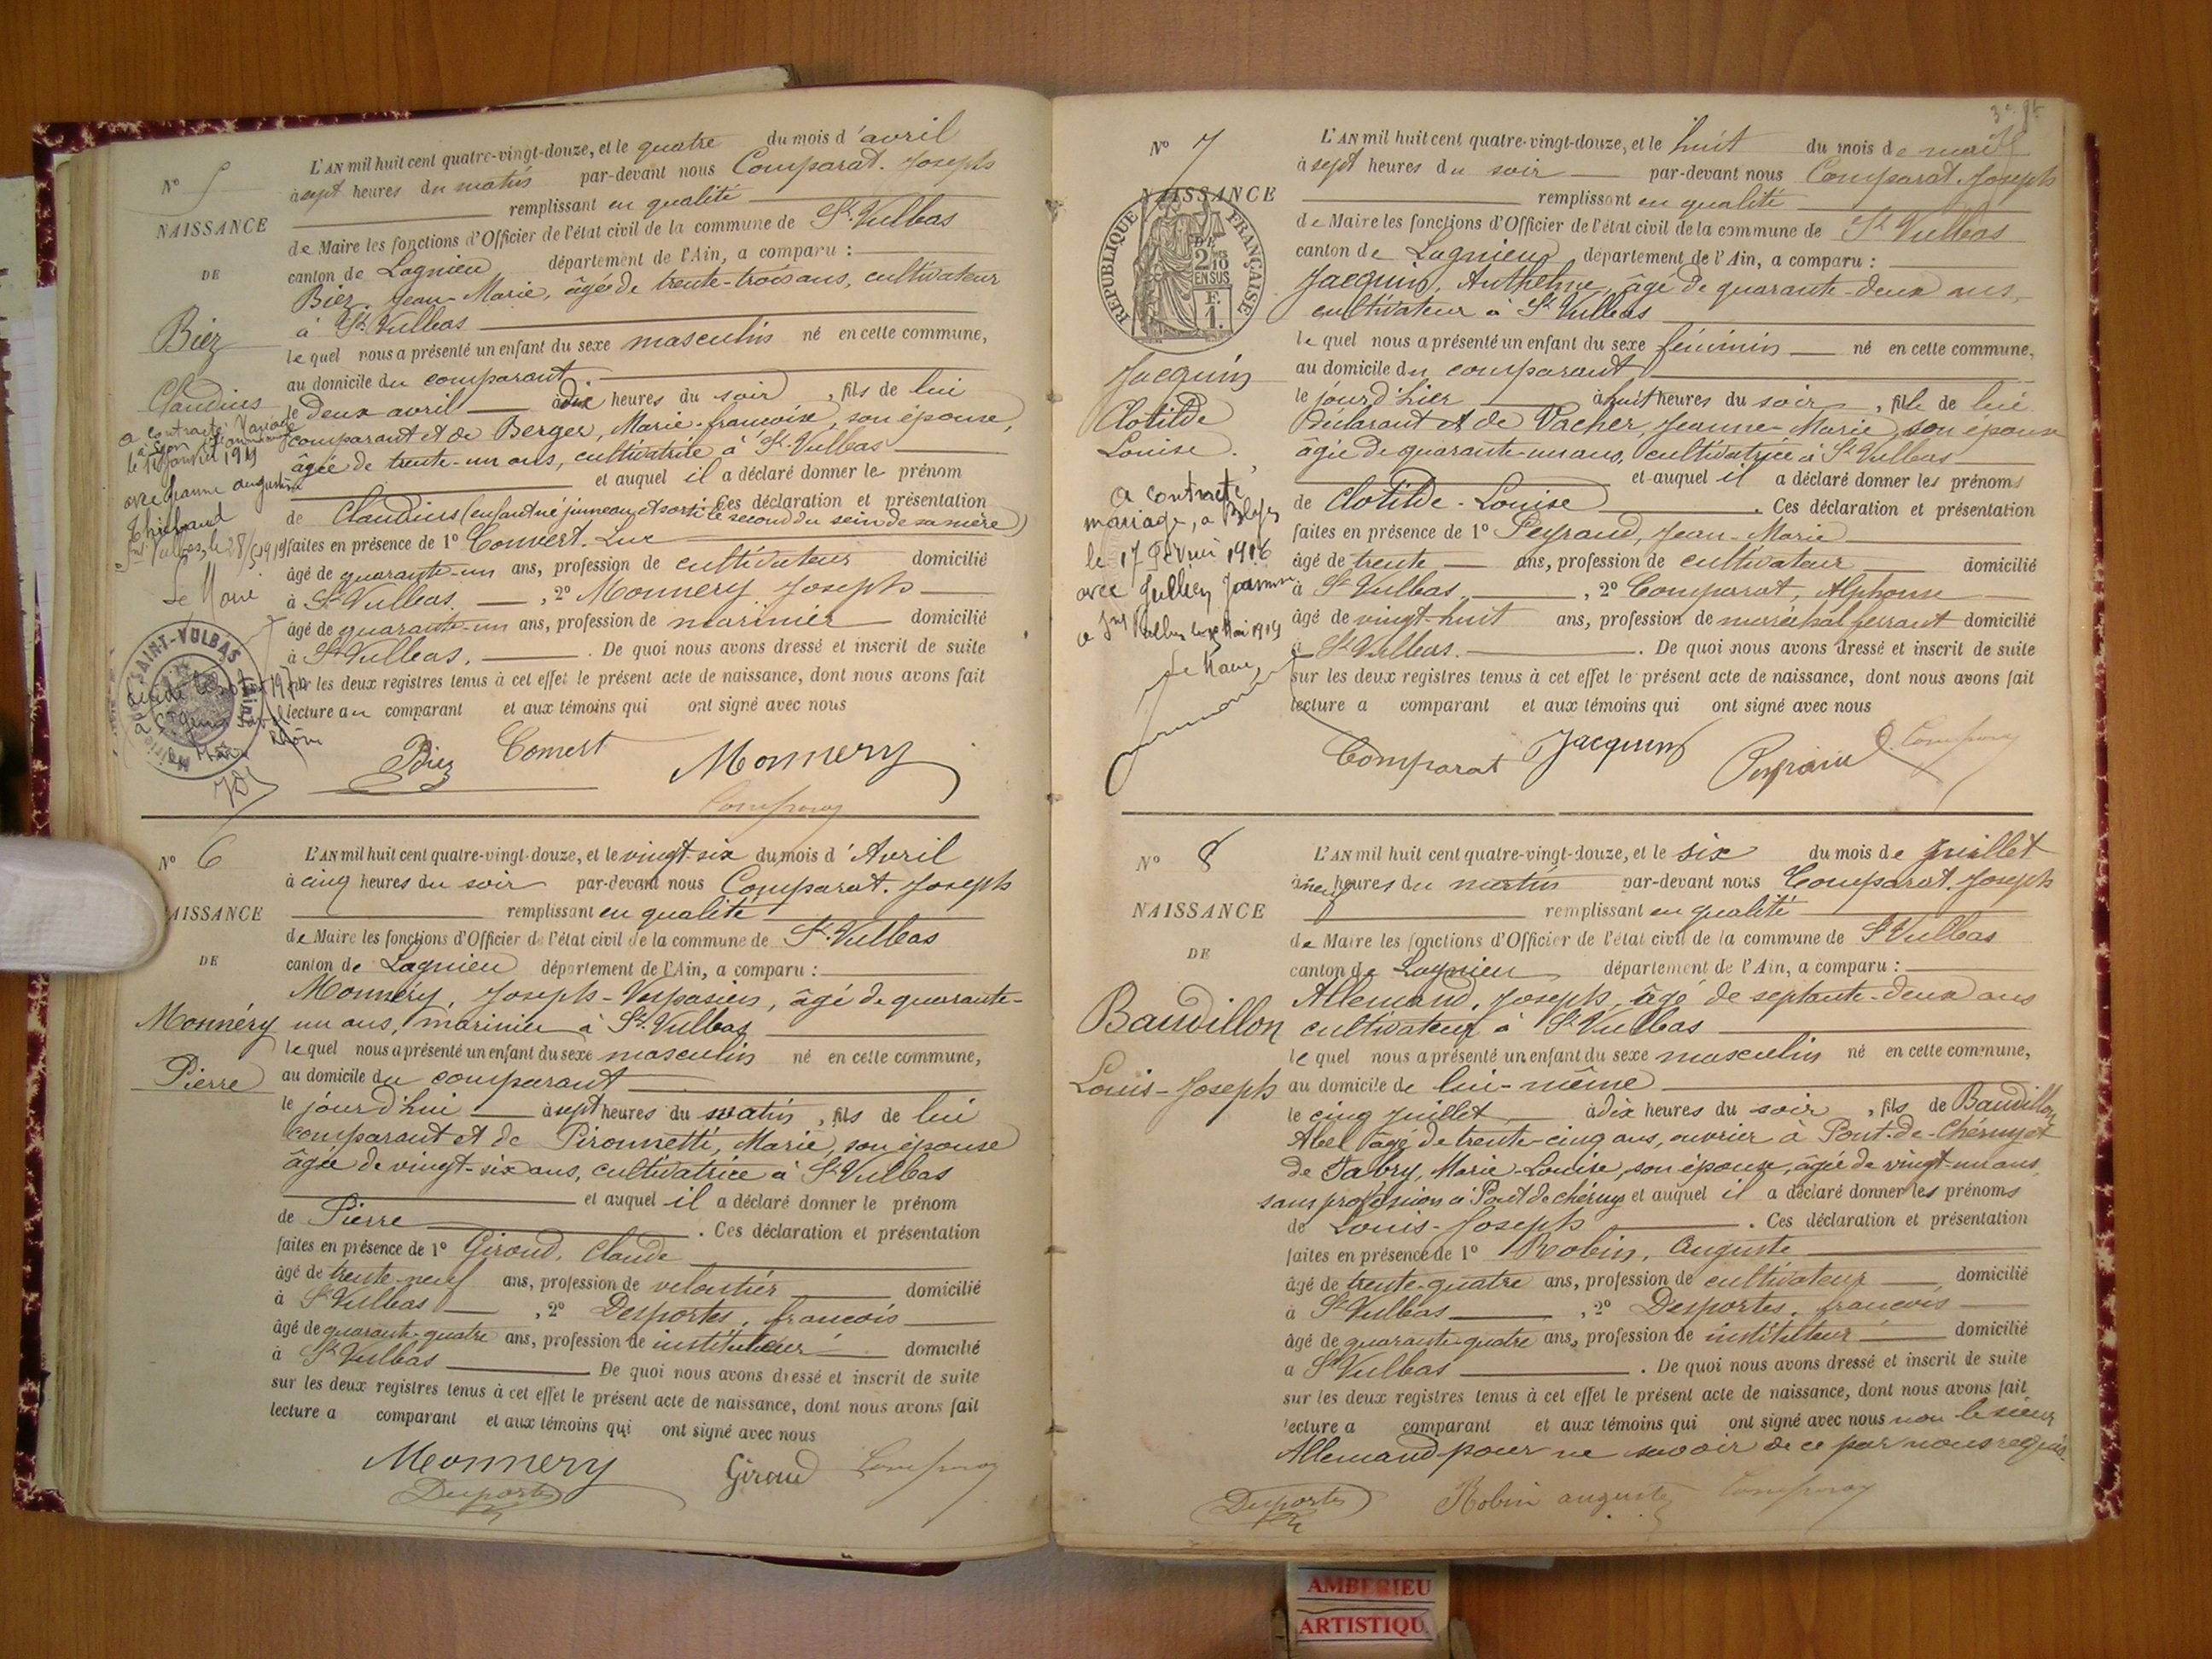 N° 5
NAISSANCE
DE
Biez
Claudius
a contracté mariage
à Lyon
le 18 janvier 1919
avec Jeanne augustine
Thiebaud
St Vulbas, le 28/5 1919
Le Maire
SAINT-VULBAS
L'AN mil huit cent quatre-vingt-douze, et le quatre du mois d'avril
à sept heures du matin par-devant nous Comparat. Joseph
remplissant en qualité
de Maire les fonctions d'Officier de l'état civil de la commune de St. Vulbas
canton de Lagnieu département de l'Ain, a comparu :
Biez. Jean-Marie, âgé de trente-trois ans, cultivateur
à St. Vulbas
lequel nous a présenté un enfant du sexe masculin né en cette commune,
au domicile du comparant
le deux avril à dix heures du soir, fils de lui
comparant et de Berger, Marie-francoise, son épouse,
âgée de trente-un ans, cultivatrice à St. Vulbas
et auquel il a déclaré donner le prénom
de Claudius (enfant né jumeau et sorti le second du sein de sa mère) Ces déclaration et présentation
faites en présence de 1° Convert. Luc
âgé de quarante-un ans, profession de cultivateur domicilié
à St Vulbas. , 2° Monnery Joseph
âgé de quarante-un ans, profession de marinier domicilié
à St Vulbas. . De quoi nous avons dressé et inscrit de suite
sur les deux registres tenus à cet effet le présent acte de naissance, dont nous avons fait
lecture au comparant et aux témoins qui ont signé avec nous
Biez Convert Monnery
Comparat
N° 6
NAISSANCE
DE
Monnéry
Pierre
L'AN mil huit cent quatre-vingt-douze, et le vingt-six du mois d'Avril
à cinq heures du soir par-devant nous Comparat. Joseph
remplissant en qualité
de Maire les fonctions d'Officier de l'état civil de la commune de St. Vulbas
canton de Lagnieu département de l'Ain, a comparu :
Monnéry, Joseph-Vespasien, âgé de quarante-
un ans, marinier à St. Vulbas
lequel nous a présenté un enfant du sexe masculin né en cette commune,
au domicile du comparant
le jourd'hui à sept heures du matin, fils de lui
comparant et de Pironnetti, Marie, son épouse
âgée de vingt-six ans, cultivatrice à St. Vulbas
et auquel il a déclaré donner le prénom
de Pierre . Ces déclaration et présentation
faites en présence de 1° Giroud, Claude
âgé de trente-neuf ans, profession de veloutier domicilié
à St Vulbas , 2° Desportes, francois
âgé de quarante-quatre ans, profession de instituteur domicilié
à St Vulbas De quoi nous avons dressé et inscrit de suite
sur les deux registres tenus à cet effet le présent acte de naissance, dont nous avons fait
lecture a comparant et aux témoins qui ont signé avec nous
Monnery Giroud Comparat
Desportes
N° 7
NAISSANCE
DE
RÉPUBLIQUE FRANÇAISE
2/10
EN SUS
F.
1.
Jacquin
Clotilde
Louise.
a contracté
mariage, à Blyes
le 17 Février 1916
avec Jullien Joannin
a Snt Vulbas le 30 Mai 1919
Le Maire,
L'AN mil huit cent quatre-vingt-douze, et le huit du mois de mai
à sept heures du soir par-devant nous Comparat. Joseph
remplissant en qualité
de Maire les fonctions d'Officier de l'état civil de la commune de St Vulbas
canton de Lagnieu département de l'Ain, a comparu :
Jacquin, Anthelme, âgé de quarante-deux ans,
cultivateur à St. Vulbas
lequel nous a présenté un enfant du sexe féminin né en cette commune,
au domicile du comparant
le jour d'hier à huit heures du soir, fille de lui
déclarant et de Vacher, Jeanne-Marie, son épouse
âgée de quarante-un ans, cultivatrice à St Vulbas
et auquel il a déclaré donner les prénoms
de Clotilde-Louise . Ces déclaration et présentation
faites en présence de 1° Peyraud, Jean-Marie
âgé de trente ans, profession de cultivateur domicilié
à St Vulbas. , 2° Comparat, Alphonse
âgé de vingt-huit ans, profession de maréchal ferrant domicilié
à St Vulbas. . De quoi nous avons dressé et inscrit de suite
sur les deux registres tenus à cet effet le présent acte de naissance, dont nous avons fait
lecture a comparant et aux témoins qui ont signé avec nous
Comparat Jacquin Comparat
N° 8
NAISSANCE
DE
Baudillon
Louis-Joseph
L'AN mil huit cent quatre-vingt-douze, et le six du mois de juillet
à neuf heures du matin par-devant nous Comparat. Joseph
remplissant en qualité
de Maire les fonctions d'Officier de l'état civil de la commune de St Vulbas
canton de Lagnieu département de l'Ain, a comparu :
Allemand, Joseph, âgé de septante-deux ans
cultivateur à St Vulbas
lequel nous a présenté un enfant du sexe masculin né en cette commune,
au domicile de lui-même
le cinq juillet à dix heures du soir, fils de Baudillon
Abel âgé de trente-cinq ans, ouvrier à Pont-de-Chéruy et
de Fabry, Marie-Louise, son épouse, âgée de vingt-un ans
sans profession à Pont de chéruy et auquel il a déclaré donner les prénoms
de Louis-Joseph . Ces déclaration et présentation
faites en présence de 1° Robin, Auguste
âgé de trente-quatre ans, profession de cultivateur domicilié
à St Vulbas , 2° Desportes, francois
âgé de quarante-quatre ans, profession de instituteur domicilié
a St Vulbas . De quoi nous avons dressé et inscrit de suite
sur les deux registres tenus à cet effet le présent acte de naissance, dont nous avons fait
lecture a comparant et aux témoins qui ont signé avec nous non le sieur
Allemand pour ne savoir de ce par nous requis.
Desportes Robin auguste Comparat
AMBERIEU
ARTISTIQU